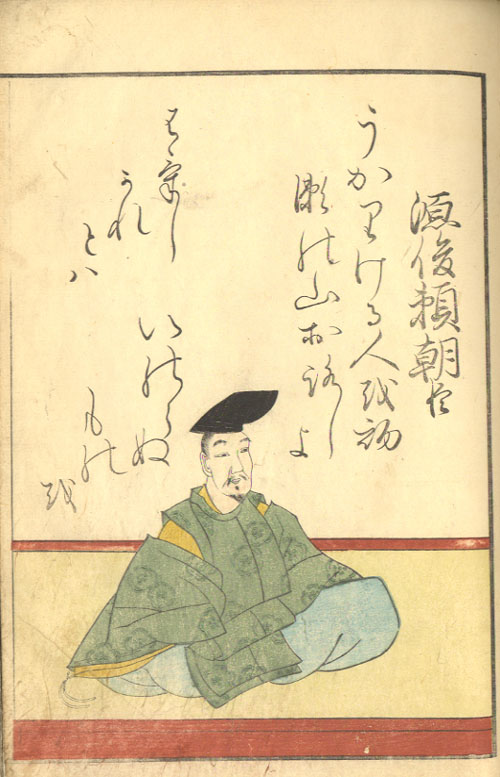 源俊頼朝臣
うかりける人を初
瀬の山おろしよ
はけし
かれ
とハ
いのらぬ
もの
を